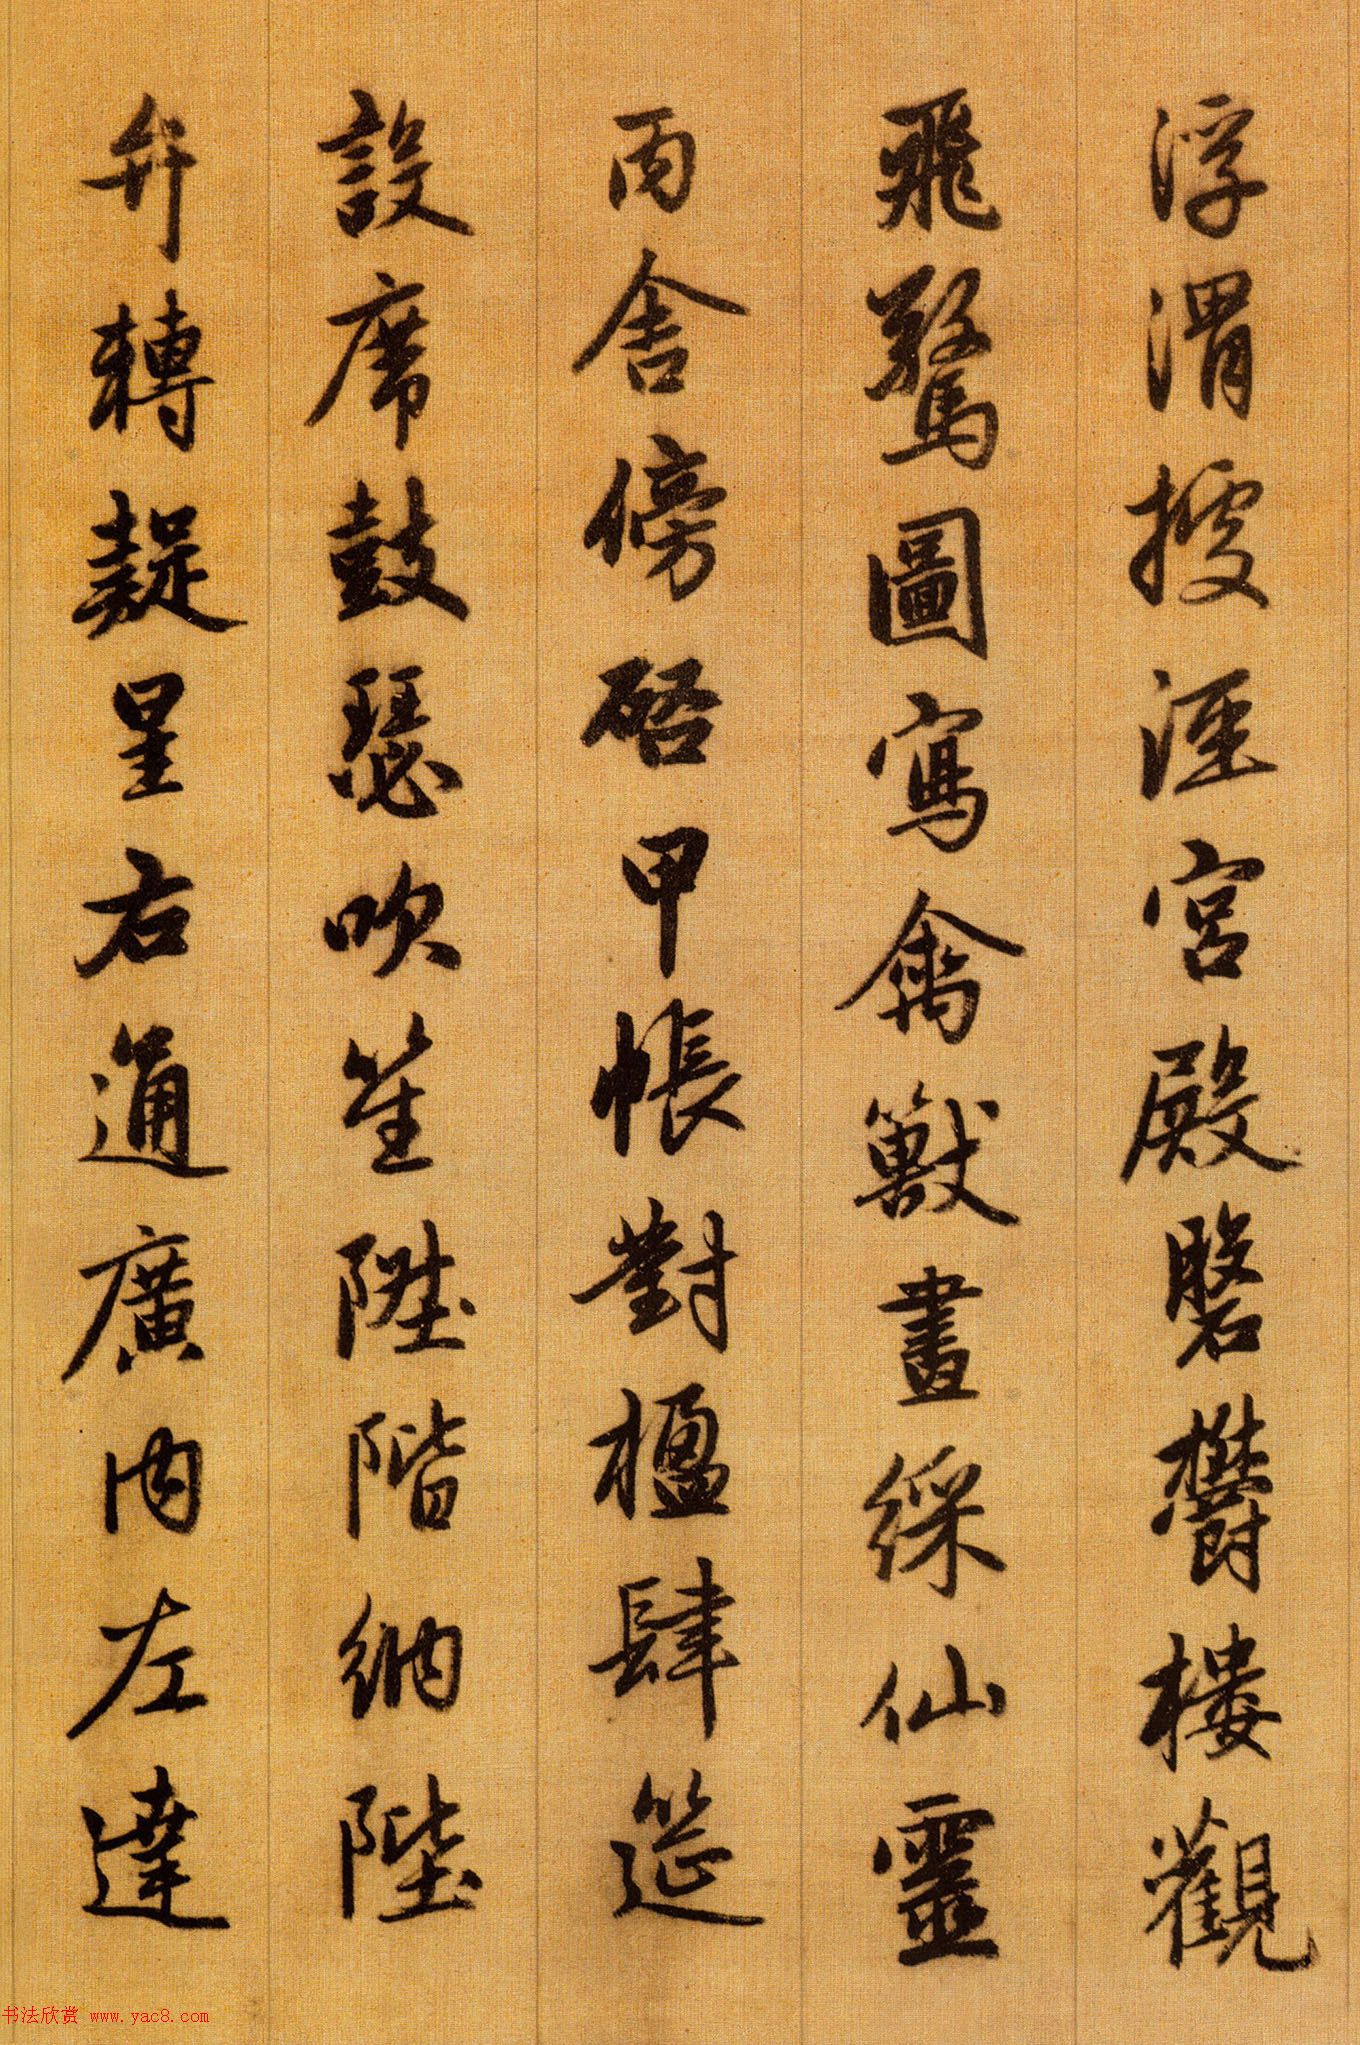 浮渭據涇宮殿磐欝樓觀
飛驚圖寫禽獸畫綵仙靈
丙舍傍啓甲帳對楹肆筵
設席鼓瑟吹笙陞階納陛
弁轉疑星右通廣內左達
书法欣赏 www.yac8.com